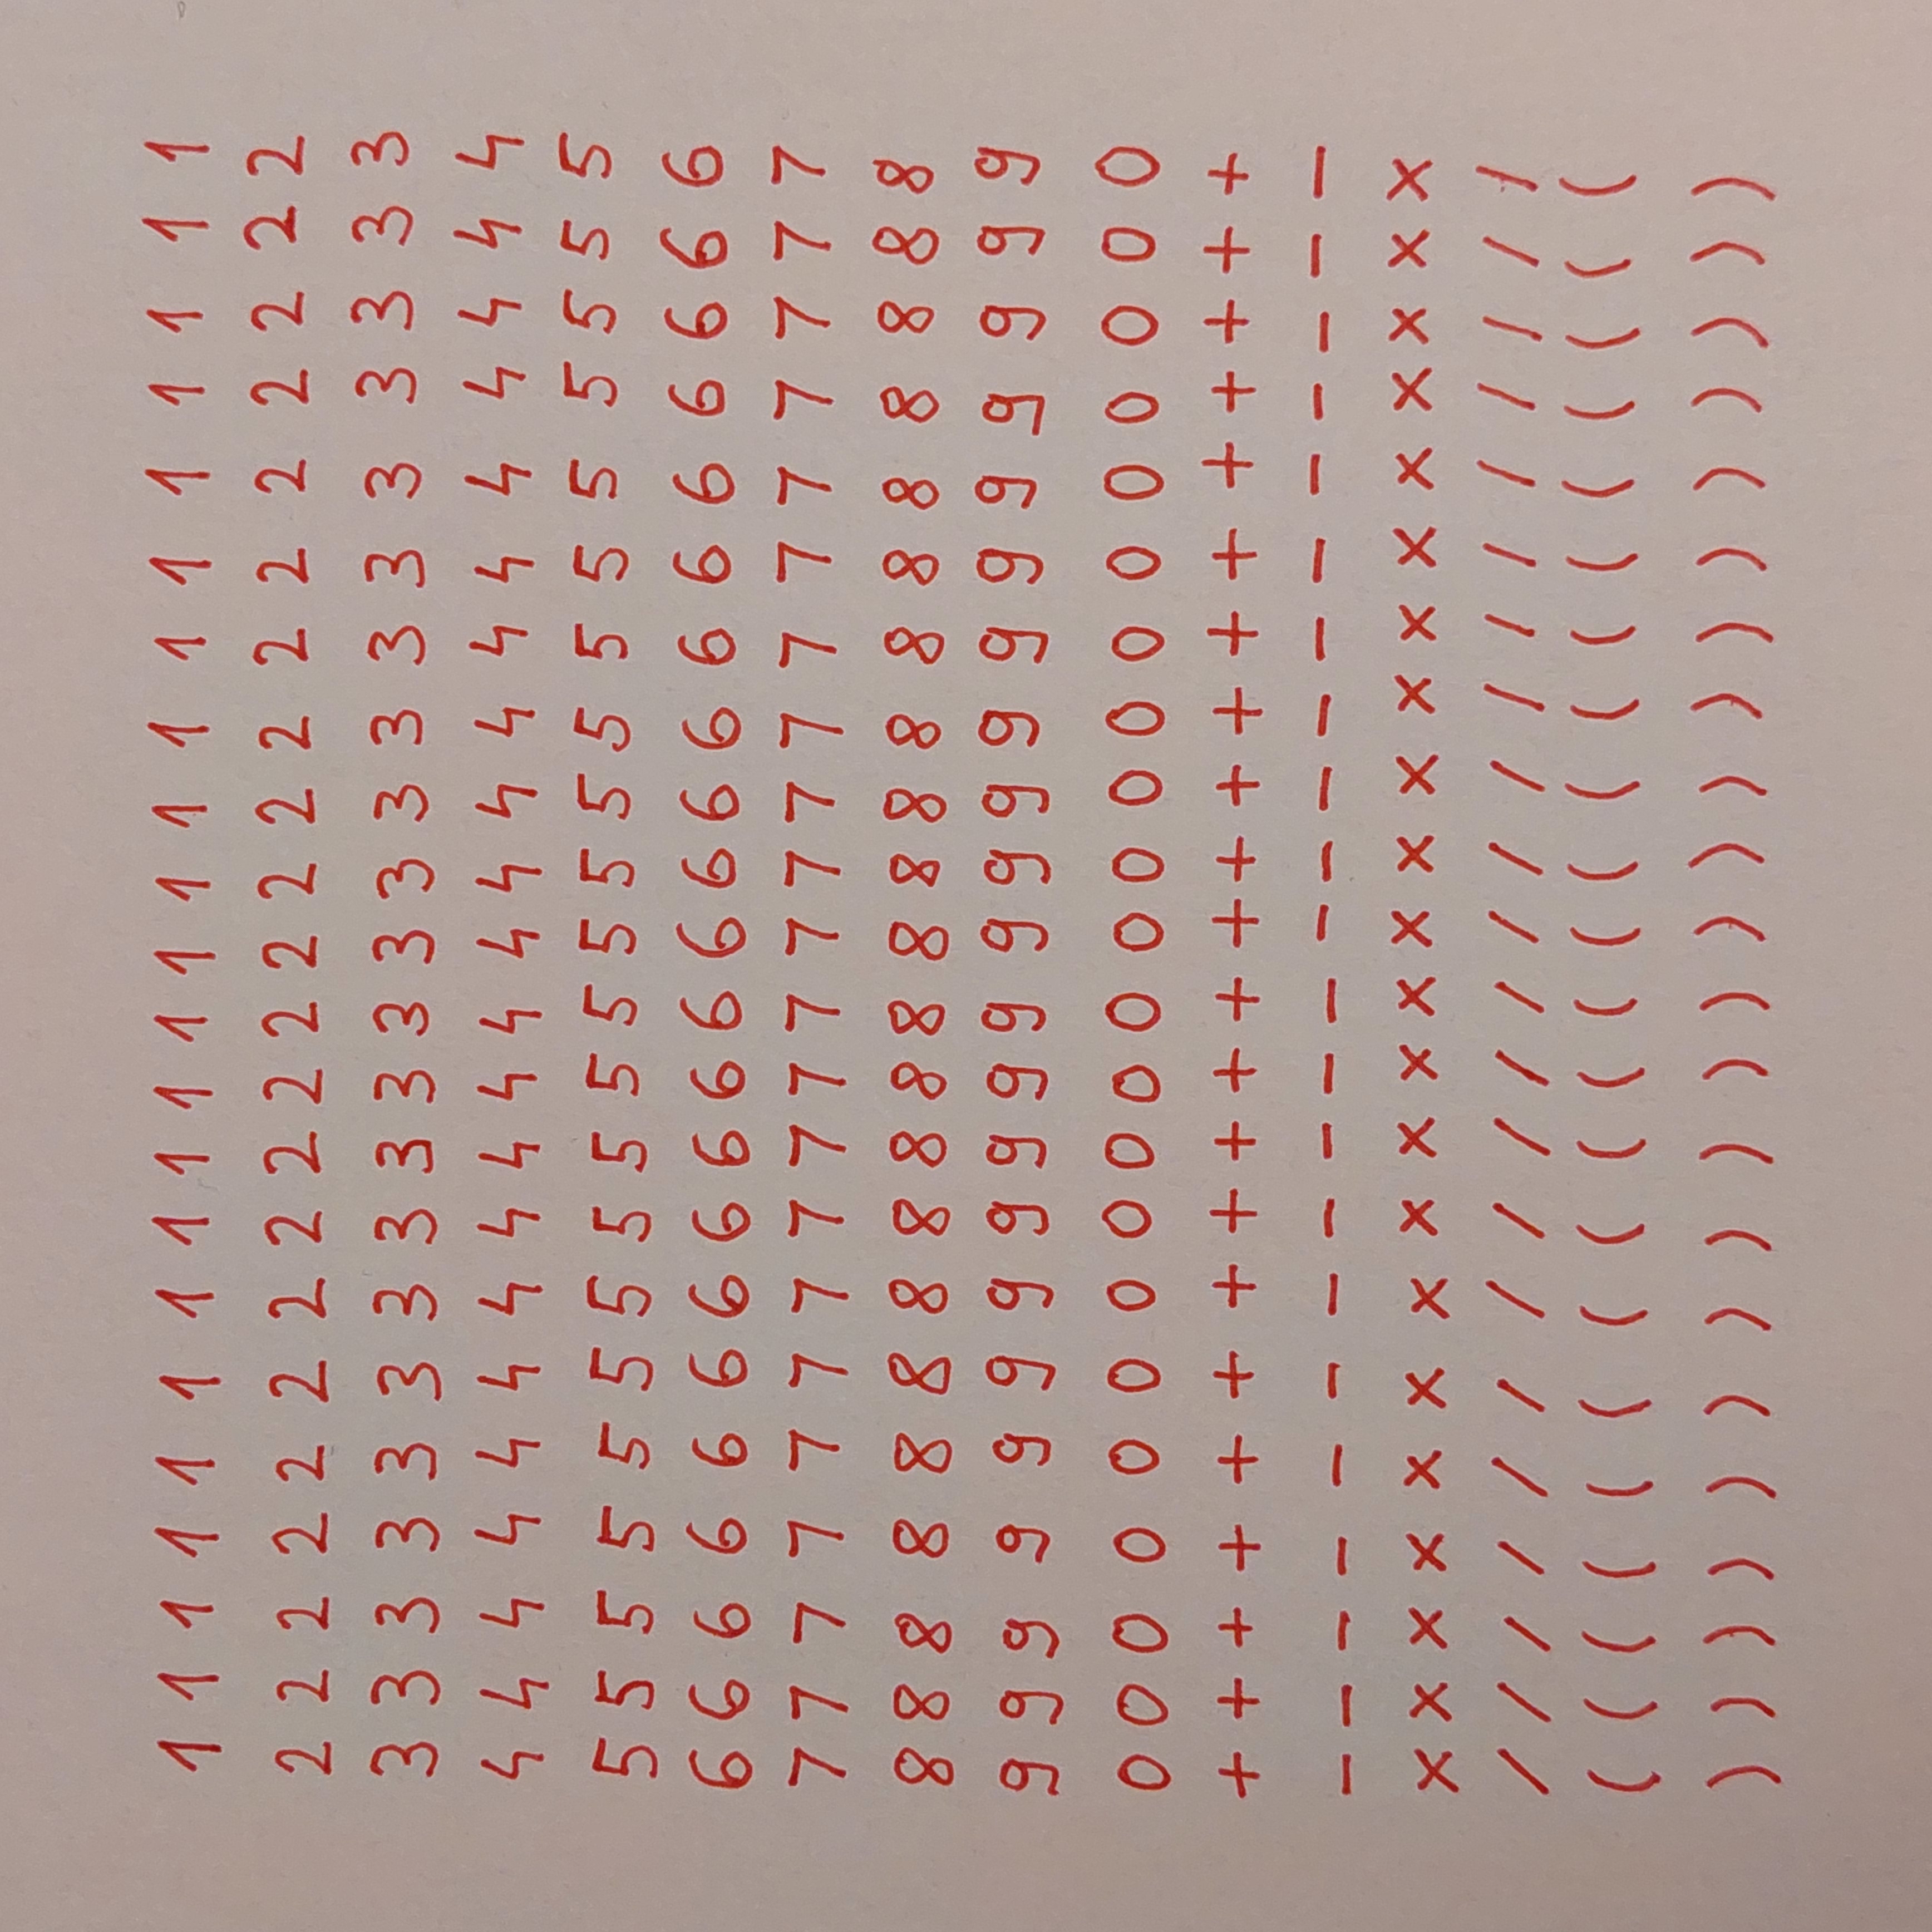 1 1 1 1 1 1 1 1 1 1 1 1 1 1 1 1 1 1 1 1 1 1
2 2 2 2 2 2 2 2 2 2 2 2 2 2 2 2 2 2 2 2 2 2
3 3 3 3 3 3 3 3 3 3 3 3 3 3 3 3 3 3 3 3 3 3
4 4 4 4 4 4 4 4 4 4 4 4 4 4 4 4 4 4 4 4 4 4
5 5 5 5 5 5 5 5 5 5 5 5 5 5 5 5 5 5 5 5 5 5
6 6 6 6 6 6 6 6 6 6 6 6 6 6 6 6 6 6 6 6 6 6
7 7 7 7 7 7 7 7 7 7 7 7 7 7 7 7 7 7 7 7 7 7
8 8 8 8 8 8 8 8 8 8 8 8 8 8 8 8 8 8 8 8 8 8
9 9 9 9 9 9 9 9 9 9 9 9 9 9 9 9 9 9 9 9 9 9
0 0 0 0 0 0 0 0 0 0 0 0 0 0 0 0 0 0 0 0 0 0
+ + + + + + + + + + + + + + + + + + + + + +
- - - - - - - - - - - - - - - - - - - - - -
× × × × × × × × × × × × × × × × × × × × × ×
/ / / / / / / / / / / / / / / / / / / / / /
( ( ( ( ( ( ( ( ( ( ( ( ( ( ( ( ( ( ( ( ( (
) ) ) ) ) ) ) ) ) ) ) ) ) ) ) ) ) ) ) ) ) )